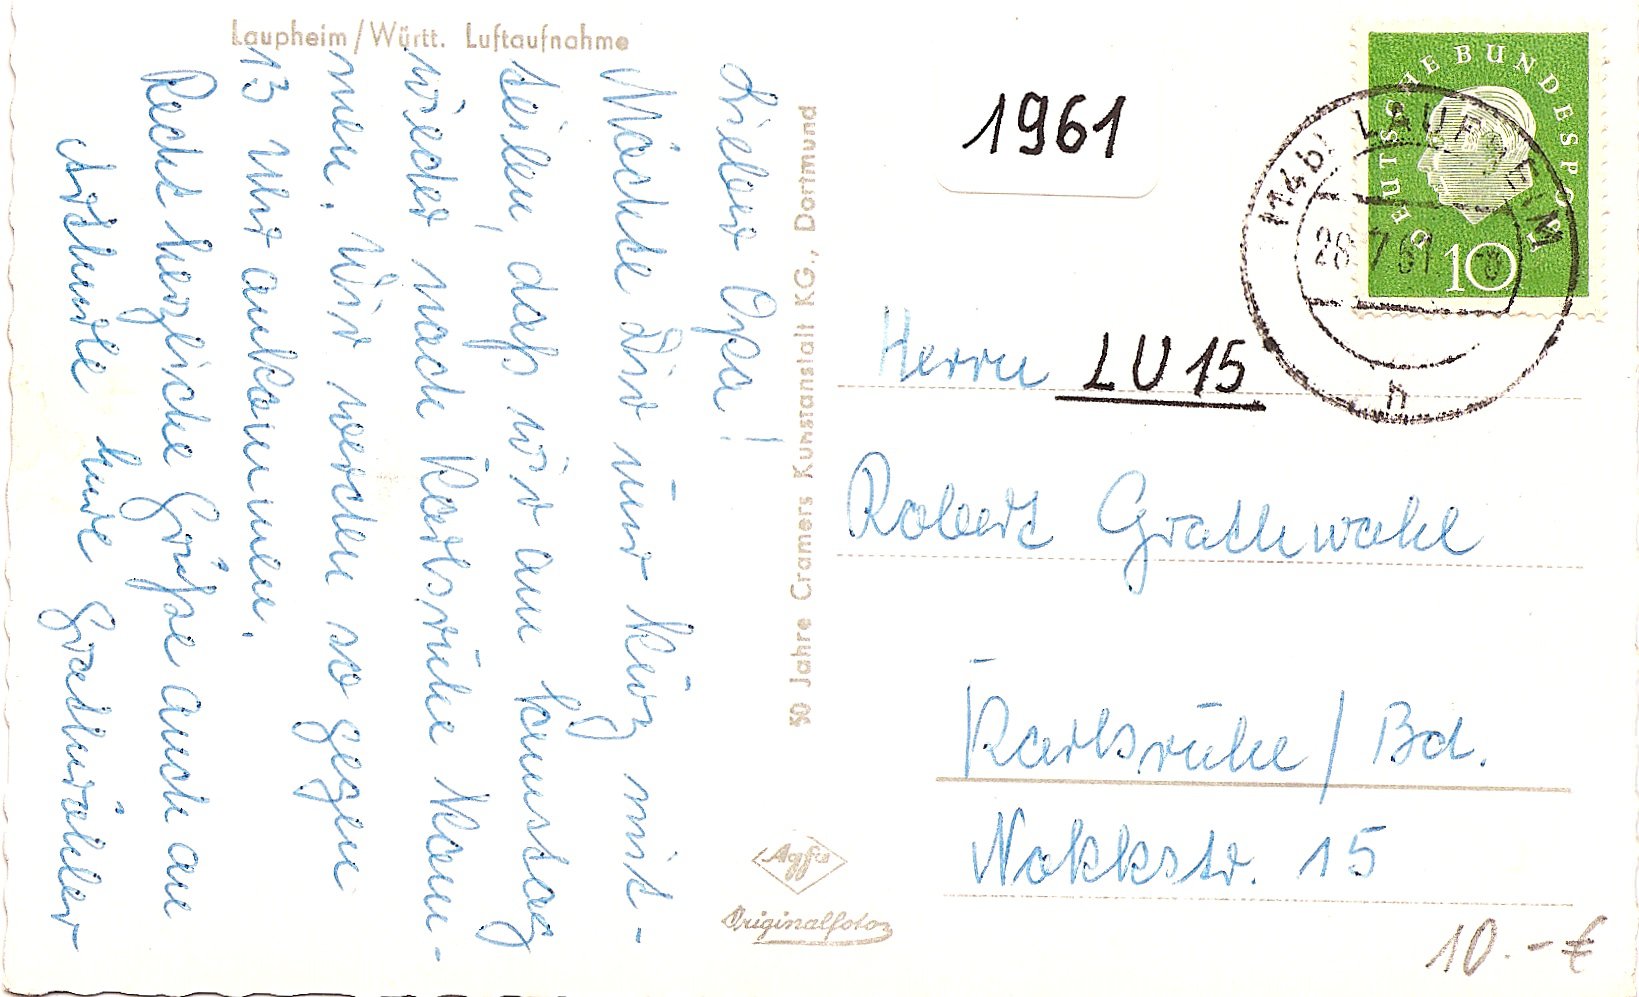 Laupheim/Württ. Luftaufnahme
Lieber Opa!
Möchte Dir nur kurz mit-
teilen, daß wir am Samstag
wieder nach Karlsruhe kom-
men. Wir werden so gegen
13 Uhr ankommen.
Recht herzliche Grüße auch an
Grathwohler
50 Jahre Cramers Kunstanstalt KG., Dortmund
Agfa
Originalfoto
1961
DEUTSCHE BUNDESPOST
10
(14b) LAUPHEIM
28.7.61
h
Herrn LU 15
Robert Grathwohl
Karlsruhe/Bd.
Nokkstr. 15
10.-€